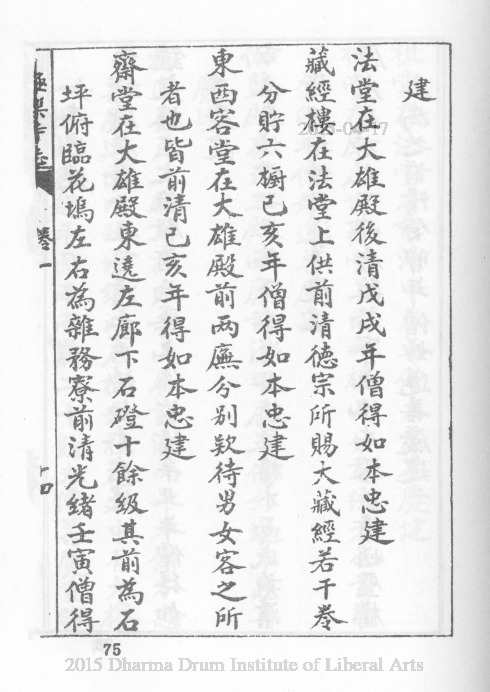 建
法堂在大雄殿後清戊戌年僧得如本忠建
藏經樓在法堂上供前清德宗所賜大藏經若干卷
分貯六櫥己亥年僧得如本忠建
東西客堂在大雄殿前兩廡分別欵待男女客之所
者也皆前清己亥年得如本忠建
齋堂在大雄殿東遶左廊下石磴十餘級其前為石
坪俯臨花塢左右為雜務寮前清光緒壬寅僧得
極樂寺志
卷一
十四
75
2015 Dharma Drum Institute of Liberal Arts